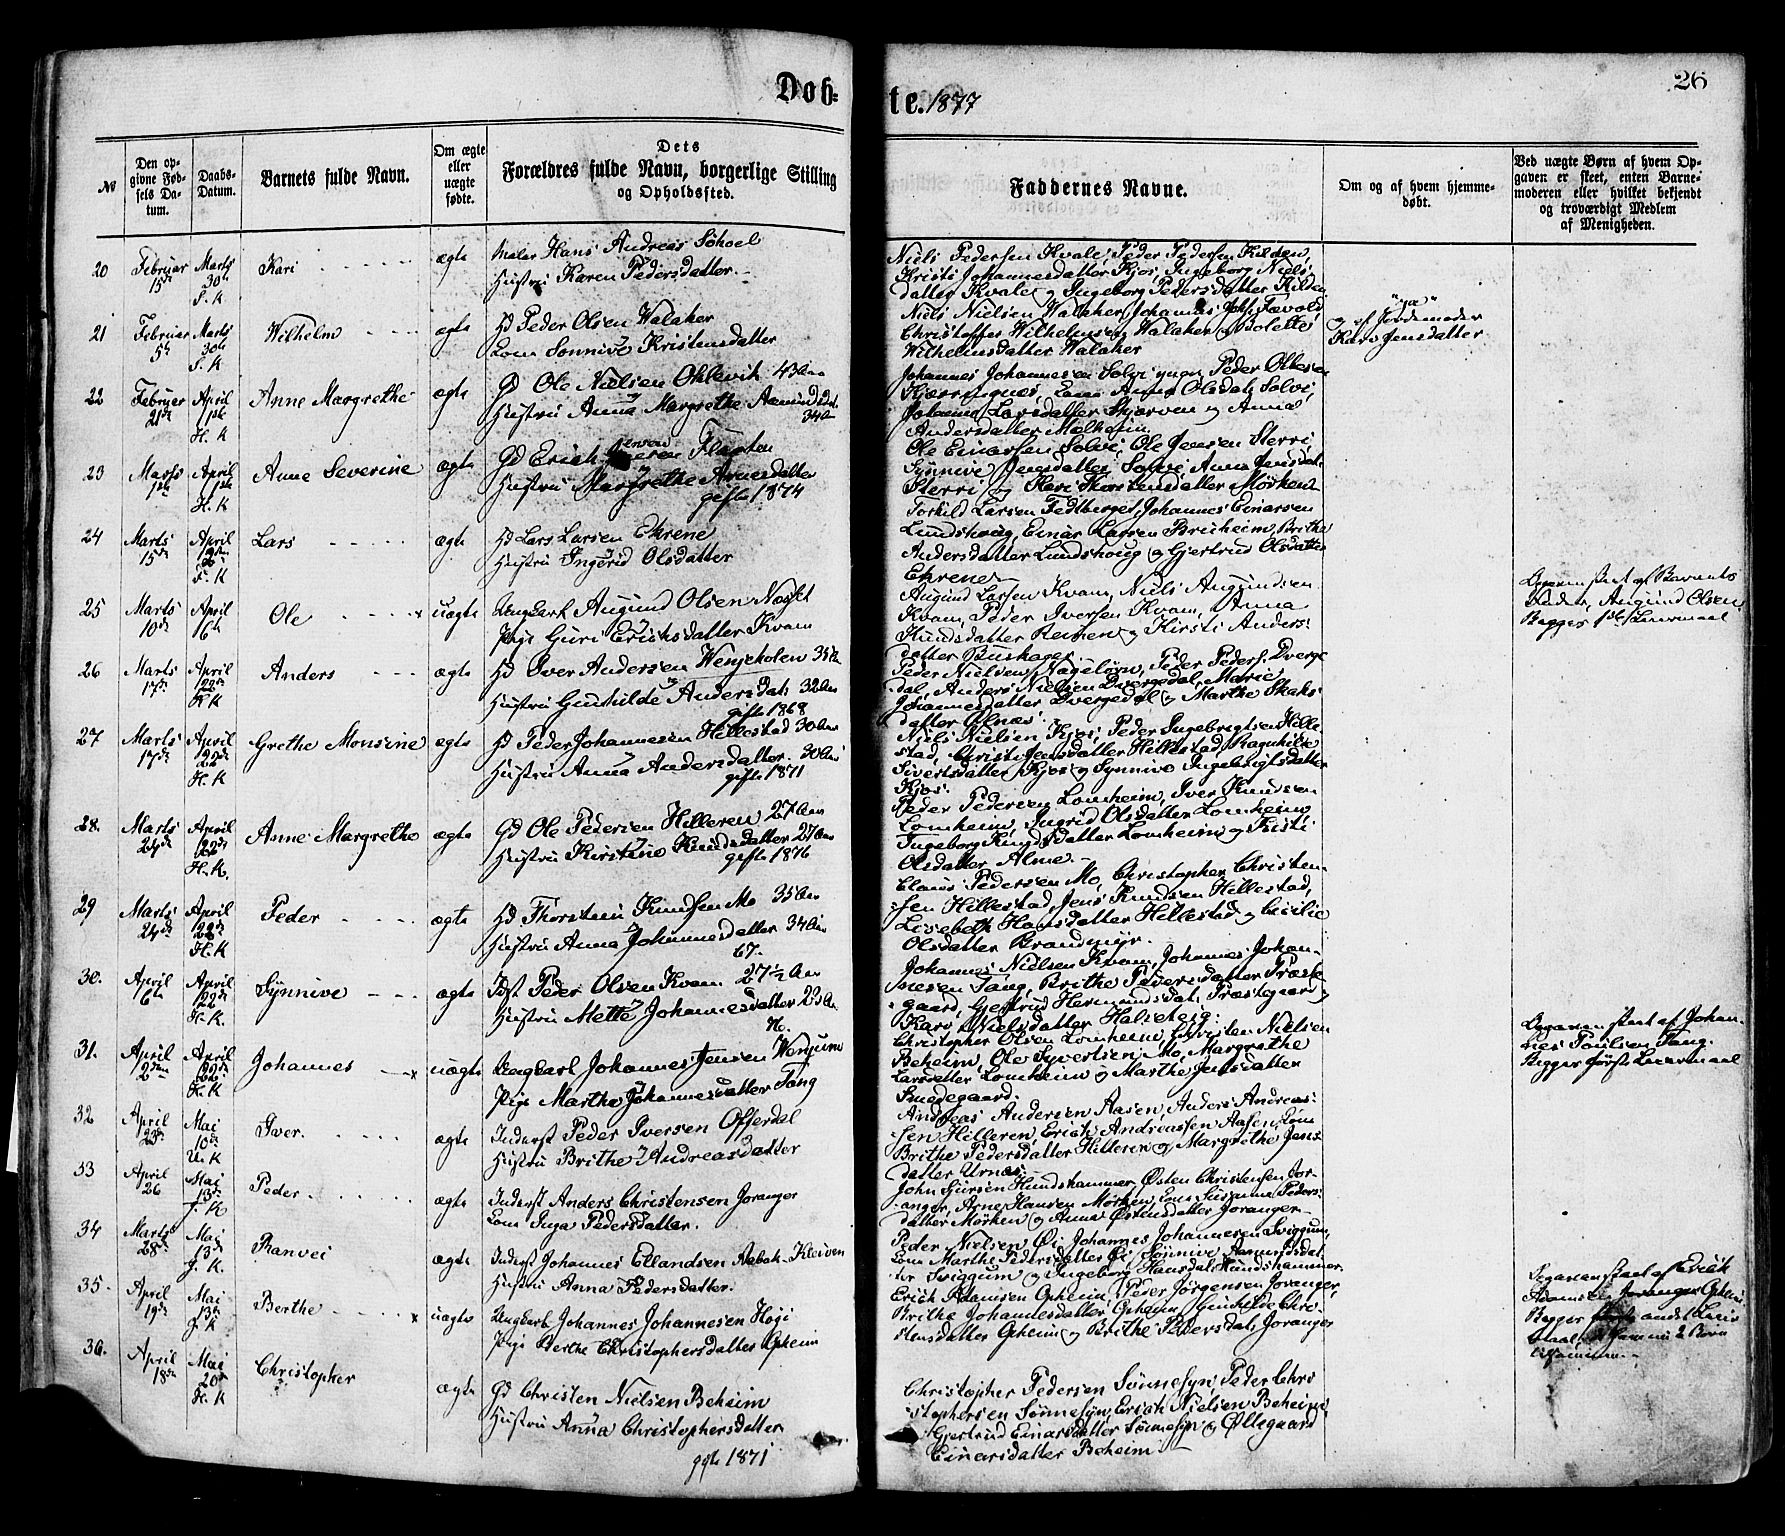 Døb-
te. 1877
26
№
Den op-
givne Fød-
sels Da-
tum.
Daabs-
Datum.
Barnets fulde Navn.
Om ægte
eller
uægte
fødte.
Dets
Forældres fulde Navn, borgerlige Stilling
og Opholdssted.
Faddernes Navne.
Om og af hvem hjemme-
døbt.
Ved uægte Børn af hvem Op-
gaven er skeet, enten Barne-
moderen eller hvilket bekjendt
og troværdigt Medlem
af Menigheden.
20 Februar 15de Marts 30te S. K Kari ægte
Maler Hans Andreas
Hustru Karen Pedersdatter
Niels Pedersen Kvale, Peder Pedersen Kilden,
Kristi Johannesdatter Kjos, Ingeborg Niels-
datter Kvale og Ingeborg Pedersdatter Kilden
21 Februar 5te Marts 30te S. K Wilhelm ægte
Gd Peder Olsen Walaker
Kone Sønnive Kristensdatter
Niels Nielsen Walaker, Johannes
Christoffer Wilhelmsen Walaker og Bolette
Wilhelmsdatter Walaker
"ja"
og af Jordemoder
Kari Jensdatter
22 Februar 21de April 1ste H. K Anne Margrethe ægte
Gd Ole Nielsen Ohlevik 43 Aar
Hustru Anna Margrethe Aamundsdat.
34 Aar
Johannes Johannesen Solvi, Peder Ottesen
Kone Anna Olsdat. Solvi,
Johanna Larsdatter og Anna
Andersdatter Mælheim
23 Marts 1ste April 1ste H. K Anne Severine ægte
Gd Erich Jensen Flaaten
Hustru Margrethe Arnesdatter
gifte 1874
Ole Einarsen Solvi, Ole Jensen Sterri
Synnive Jensdatter Solvi, Anna Jensdat.
Sterri og Kari Thorstensdatter Mørken
24 Marts 15de April 2den F. K Lars ægte
Gd Lars Larsen Ekrene
Hustru Ingerid Olsdatter
Torkild Larsen Fedtberget, Johannes Einarsen
Lundshoug, Einar Larsen Bruheim, Brithe
Andersdatter Lundshoug og Gjertrud Olsdatter
Ekrene
25 Marts 10de April 6te Ole x uægte
Ungkarl Augund Olsen Næsset
Pige Guri Erichsdatter Kvam
Augund Larsen Kvam, Niels Augundsen
Kvam, Peder Iversen Kvam, Anna
Knudsdatter og Kirsti Anders-
datter Buskager
Opgaven skeet af Barnets
Fader, Augund Olsen,
Begges 1ste Leiermaal
26 Marts 17de April 22de H K Anders ægte
Gd Iver Andersen Wenjeholen 35 Aar
Hustru Gunhilde Andersdat. 32 Aar
gifte 1868
Peder Nielsen Nageløen, Peder Peders. Dverge-
dal, Anders Nielsen Dvergedal, Marie
Johannesdatter Dvergedal og Marthe
datter Ølnæs
27 Marts 17de April 22de H. K Grethe Monsine ægte
Gd Peder Johannesen Hillestad 30 Aar
Hustru Anna Andersdatter 30 Aar
gifte 1871
Niels Nielsen Kjos, Peder Ingebrigtsen Hille-
stad, Christi Jensdatter Hillestad, Ragnhilde
Sivertsdatter Kjos og Synnive Ingebrigtsdatter
Kjos.
28. Marts 24de April 22de H. K. Anne Margrethe ægte
Gd Ole Pedersen Hilleren 27 Aar
Hustru Kirstine Knudsdatter 27 Aar
gifte 1876
Peder Pedersen Lomheim, Iver Knudsen
Lomheim, Ingrid Olsdatter Lomheim,
Ingeborg Knudsdatter Lomheim og Kristi
Olsdatter Alme.
29 Marts 24de April 22de H. K Peder ægte
Gd Thorstein Knudsen Mo 35 Aar
Hustru Anna Johannesdatter 34 Aar
67.
Claus Pedersen Mo, Christopher Christen-
sen Hillestad, Jens Knudsen Hillestad,
Lisebeth Hansdatter Hillestad og Cicilie
Olsdatter Brandmyr.
30. April 6te April 22de H. K. Synnive ægte
Peder Olsen Kvam 27½ Aar
Hustru Mette Johannesdatter 23 Aar
76.
Johannes Nielsen Kvam, Johannes Johan-
nesen Tang, Brithe Præste-
gaard, Gjertrud Hermundsdat. Præstegaard og
Kari Nielsdatter
31. April 2den April 22de H. K Johannes x uægte
Ungkarl Johannes Jensen Wenjum
Pige Martha Johannesdatter Tang
Christopher Olsen Lomheim, Christen Nielsen
Beheim, Ole Syvertsen Mo, Margrethe
Larsdatter Lomheim og Marthe Jensdatter
Smedegaard.
Opgaven skeet af Johan-
nes Poulsen Tang.
Begges første Leiermaal
32 April 23de Mai 10de U. K Iver ægte
Inderst Peder Iversen Offerdal
Hustru Brithe Andreasdatter
Andreas Andersen Aasen, Anders Andreas-
sen Hilleren, Erich Andreassen Aasen, Kone
Brithe Pedersdatter Hilleren og Margrethe Jens-
datter Urnæs
33 April 26 Mai 13de J. K Peder ægte
Inderst Anders Christensen Joranger
Kone Inga Pedersdatter.
John Sjursen Hundshammer, Østen Christensen Jor-
anger, Arne Hansen Mørken, Kone Susanna Peders-
datter Mørken og Anna Østensdatter Joranger
34 Marts 28de Mai 13de J. K. Ranvei ægte
Inderst Johannes Ellandsen Kleiven
Hustru Anna Pedersdatter.
Peder Nielsen Øi, Johannes Johannesen Sviggum,
Kone Marthe Pedersdatter Øi, Sønnive Aamundsdat-
ter Sviggum og Ingeborg Hansdat. Hundshammer
35. April 19de Mai 13de J. K Berthe x uægte
Ungkarl Johannes Johannesen Høgi
Pige Berthe Christophersdatter Opheim
Erich Adamsen Opheim, Peder Jørgensen Joranger,
Brithe Johannesdatter Opheim, Gunhilde Chri-
stensdatter Opheim og Brithe Pedersdat. Joranger
Opgaven skeet af Erich
Adamsen Opheim
Begges andet Leier-
maal 2 Børn
tilsammen.
36. April 18de Mai 20de H. K Christopher ægte
Gd Christen Nielsen Beheim
Hustru Anna Christophersdatter
gifte 1871
Christopher Pedersen Sønnesyn, Peder Chri-
stophersen Sønnesyn, Erich Nielsen Beheim,
Gjertrud Einarsdatter Sønnesyn og Øllegaard
Einarsdatter Beheim